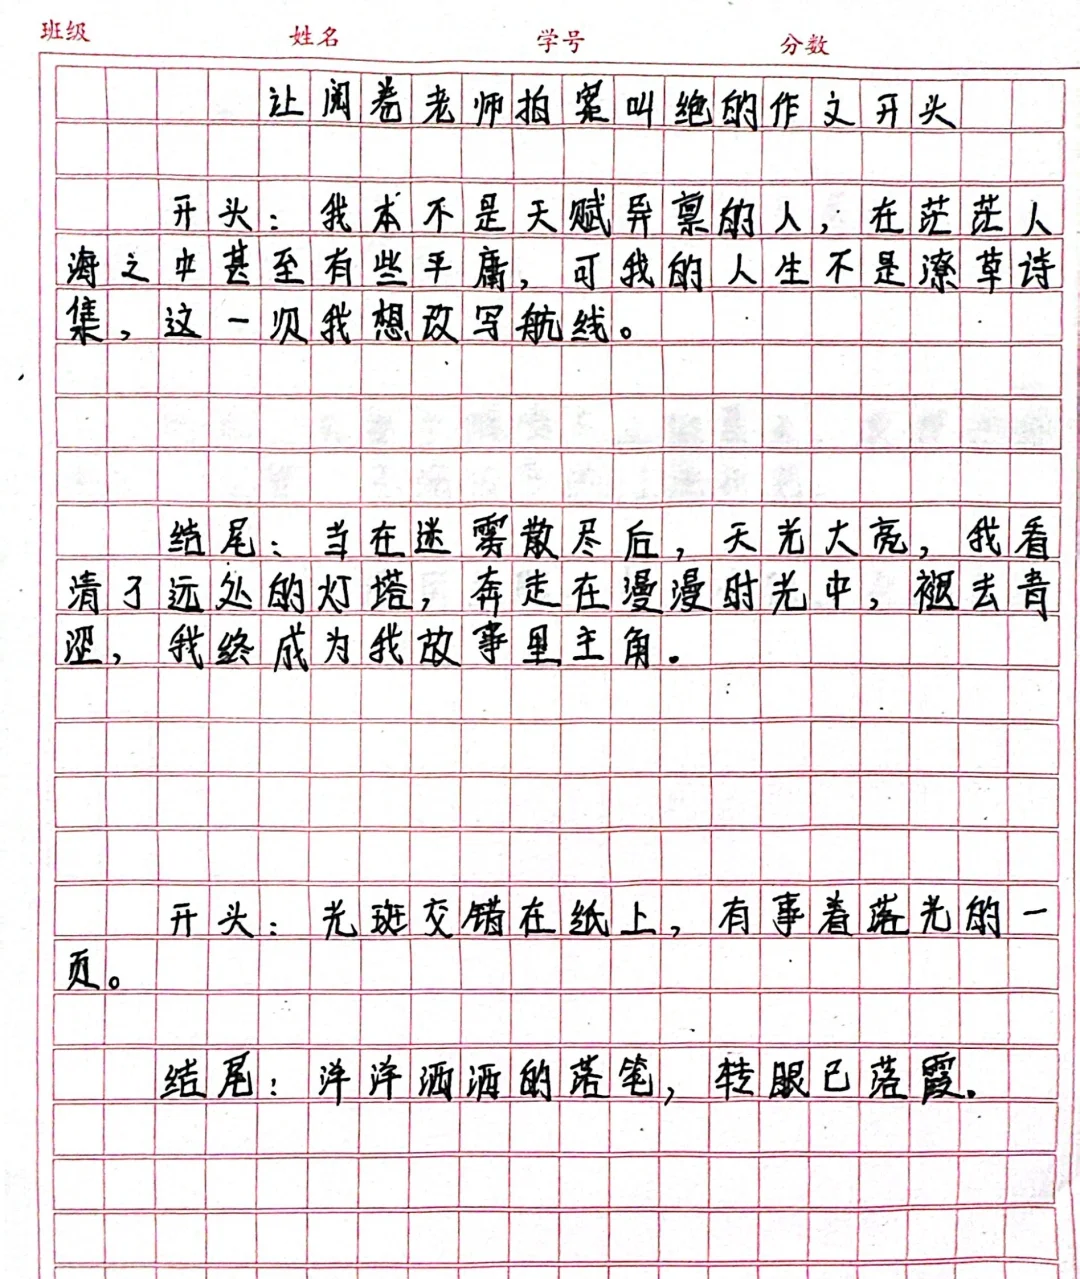 班级 姓名 学号 分数
让阅卷老师拍案叫绝的作文开头
开头：我本不是天赋异禀的人，在茫茫人
海之中甚至有些平庸，可我的人生不是潦草诗
集，这一次我想改写航线。
结尾：当在迷雾散尽后，天光大亮，我看
清了远处的灯塔，奔走在漫漫时光中，褪去青
涩，我终成为我故事里主角.
开头：光斑交错在纸上，有事着落光的一
页。
结尾：洋洋洒洒的落笔，转眼已落霞.